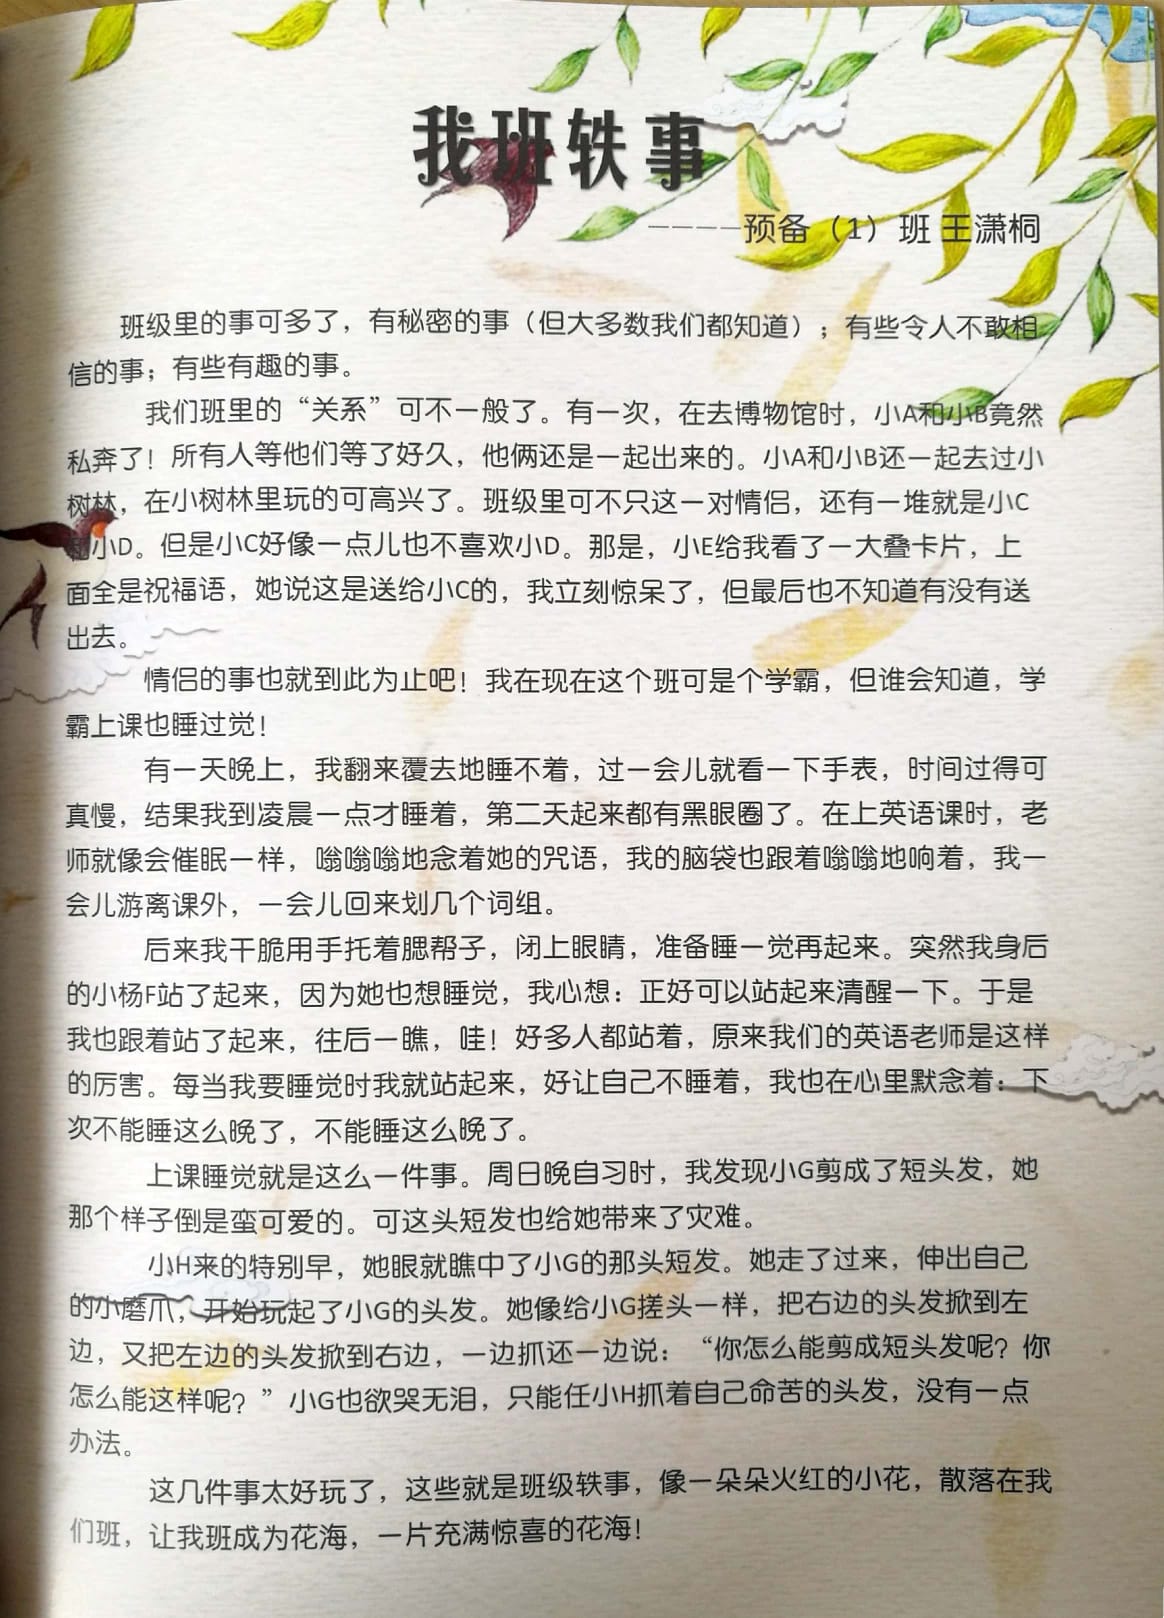 我班轶事
————预备（1）班 王潇桐
班级里的事可多了，有秘密的事（但大多数我们都知道）；有些令人不敢相
信的事；有些有趣的事。
我们班里的“关系”可不一般了。有一次，在去博物馆时，小A和小B竟然
私奔了！所有人等他们等了好久，他俩还是一起出来的。小A和小B还一起去过小
树林，在小树林里玩的可高兴了。班级里可不只这一对情侣，还有一堆就是小C
和小D。但是小C好像一点儿也不喜欢小D。那是，小E给我看了一大叠卡片，上
面全是祝福语，她说这是送给小C的，我立刻惊呆了，但最后也不知道有没有送
出去。
情侣的事也就到此为止吧！我在现在这个班可是个学霸，但谁会知道，学
霸上课也睡过觉！
有一天晚上，我翻来覆去地睡不着，过一会儿就看一下手表，时间过得可
真慢，结果我到凌晨一点才睡着，第二天起来都有黑眼圈了。在上英语课时，老
师就像会催眠一样，嗡嗡嗡地念着她的咒语，我的脑袋也跟着嗡嗡地响着，我一
会儿游离课外，一会儿回来划几个词组。
后来我干脆用手托着腮帮子，闭上眼睛，准备睡一觉再起来。突然我身后
的小杨F站了起来，因为她也想睡觉，我心想：正好可以站起来清醒一下。于是
我也跟着站了起来，往后一瞧，哇！好多人都站着，原来我们的英语老师是这样
的厉害。每当我要睡觉时我就站起来，好让自己不睡着，我也在心里默念着：下
次不能睡这么晚了，不能睡这么晚了。
上课睡觉就是这么一件事。周日晚自习时，我发现小G剪成了短头发，她
那个样子倒是蛮可爱的。可这头短发也给她带来了灾难。
小H来的特别早，她眼就瞧中了小G的那头短发。她走了过来，伸出自己
的小磨爪，开始玩起了小G的头发。她像给小G搓头一样，把右边的头发掀到左
边，又把左边的头发掀到右边，一边抓还一边说：“你怎么能剪成短头发呢？你
怎么能这样呢？”小G也欲哭无泪，只能任小H抓着自己命苦的头发，没有一点
办法。
这几件事太好玩了，这些就是班级轶事，像一朵朵火红的小花，散落在我
们班，让我班成为花海，一片充满惊喜的花海！